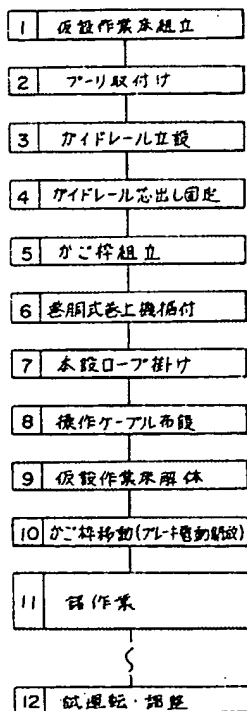 1 仮設作業床組立
2 プーリ取付け
3 ガイドレール立設
4 ガイドレール芯出し固定
5 かご枠組立
6 巻胴式巻上機据付
7 本設ロープ掛け
8 操作ケーブル布設
9 仮設作業床解体
10 かご枠移動(ブレーキ電動開放)
11 諸作業
12 試運転・調整